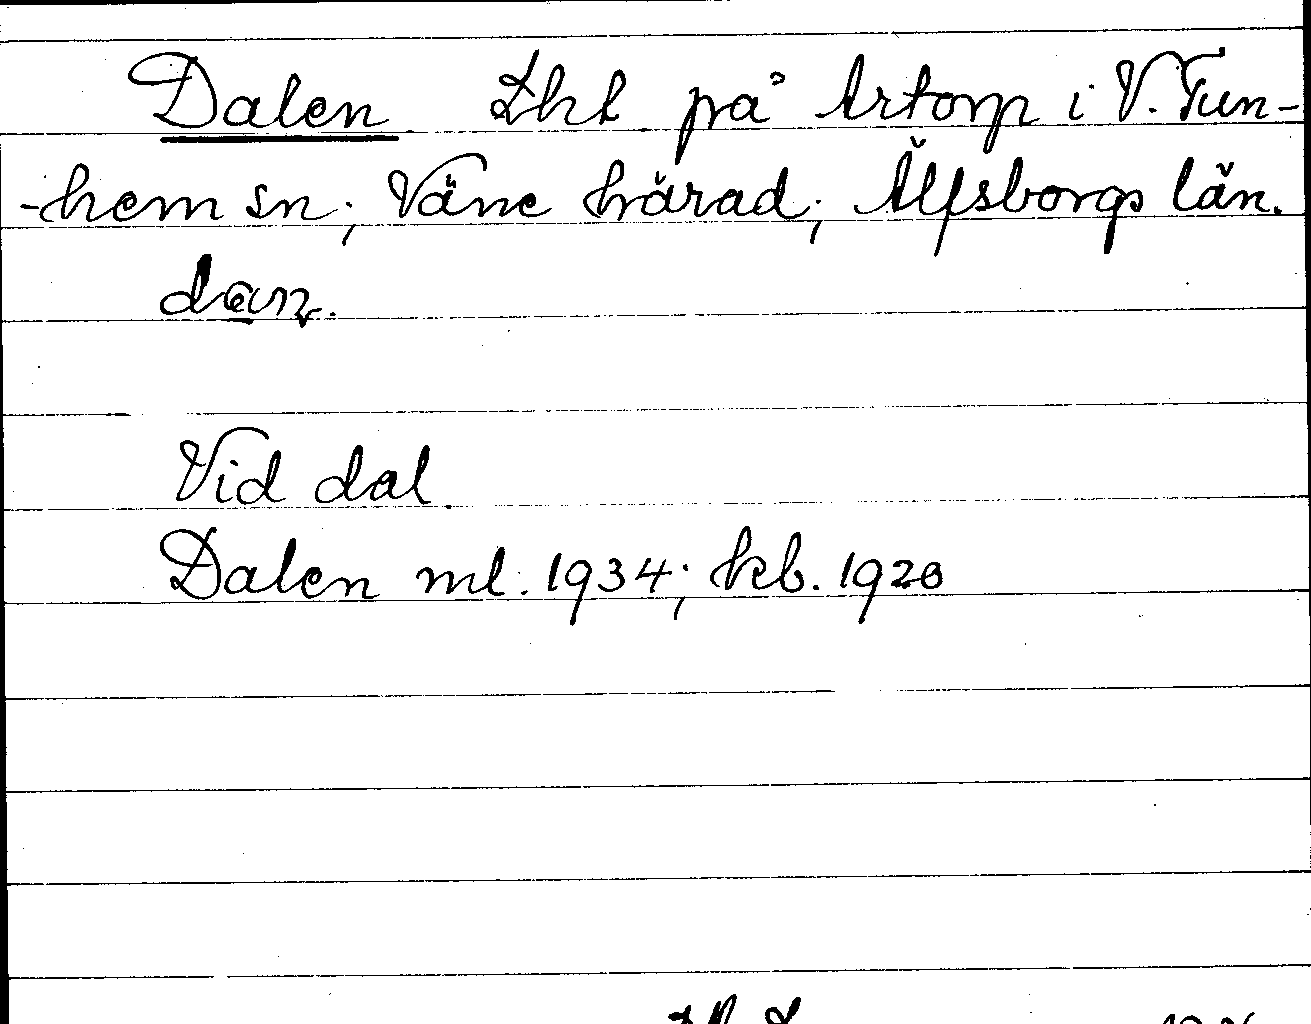 Dalen Lht på Artorp i V. Tun-
-hem sn; Väne härad; Älfsborgs län.
Vid dal
Dalen ml. 1934; kb. 1920